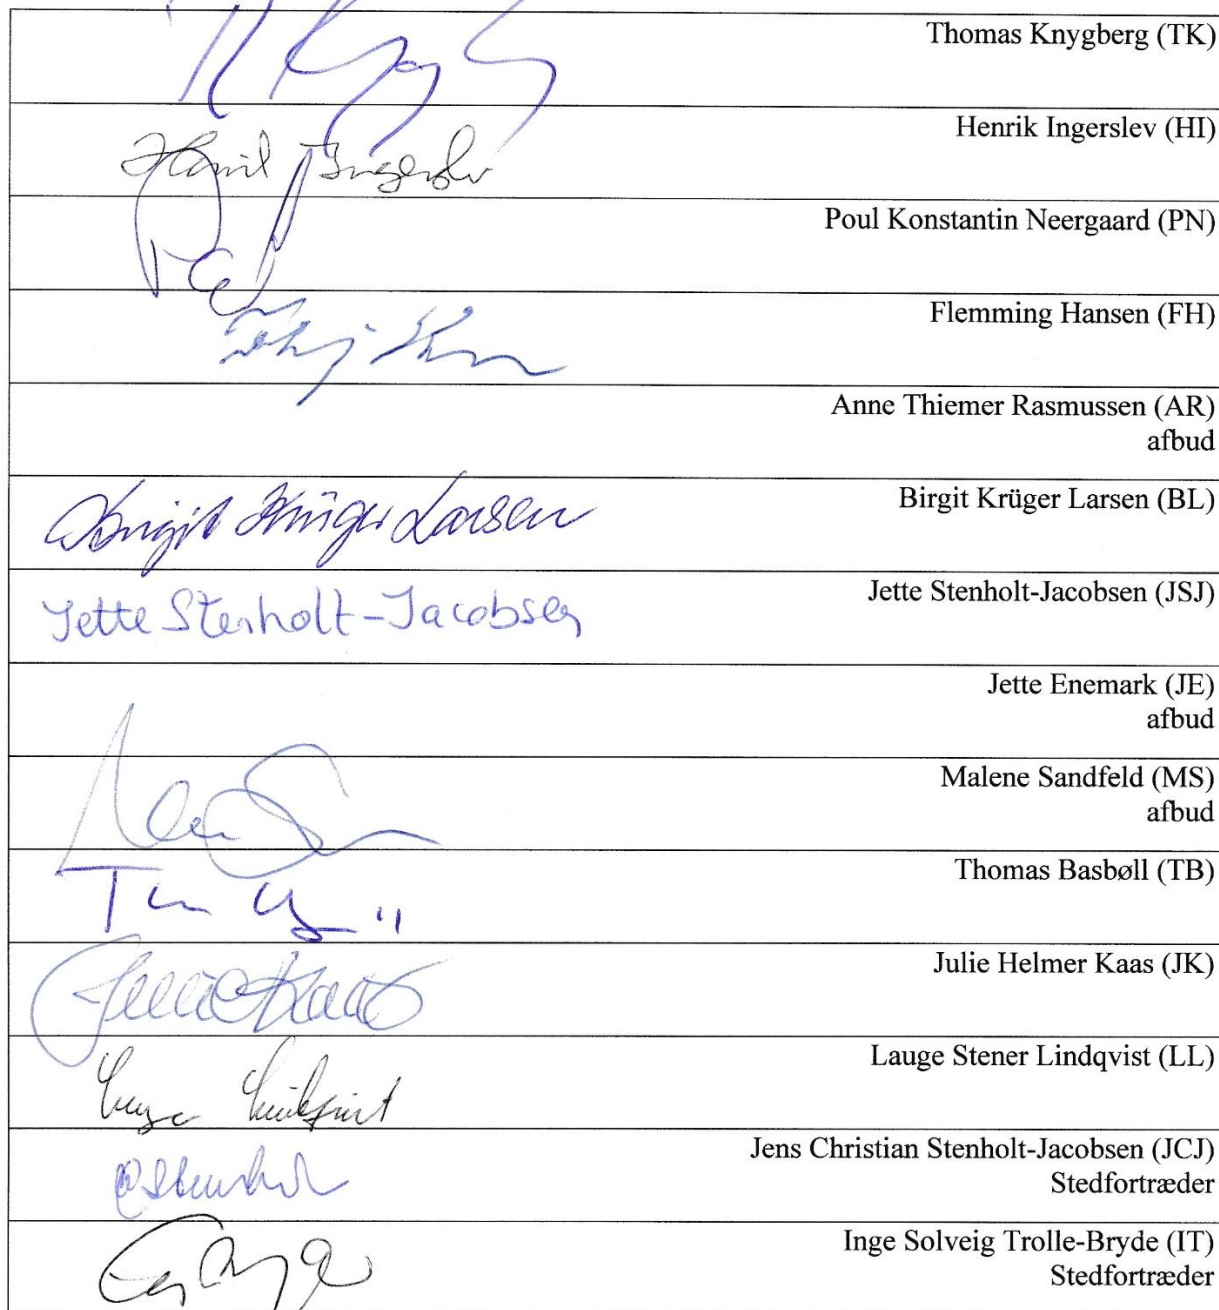 Thomas Knygberg (TK)
Henrik Ingerslev (HI)
Poul Konstantin Neergaard (PN)
Flemming Hansen (FH)
Anne Thiemer Rasmussen (AR)
afbud
Birgit Krüger Larsen Birgit Krüger Larsen (BL)
Jette Stenholt-Jacobsen Jette Stenholt-Jacobsen (JSJ)
Jette Enemark (JE)
afbud
Malene Sandfeld (MS)
afbud
Thomas Basbøll (TB)
Julie Kaas Julie Helmer Kaas (JK)
Lauge Stener Lindqvist (LL)
Jens Christian Stenholt-Jacobsen (JCJ)
Stedfortræder
Inge Solveig Trolle-Bryde (IT)
Stedfortræder